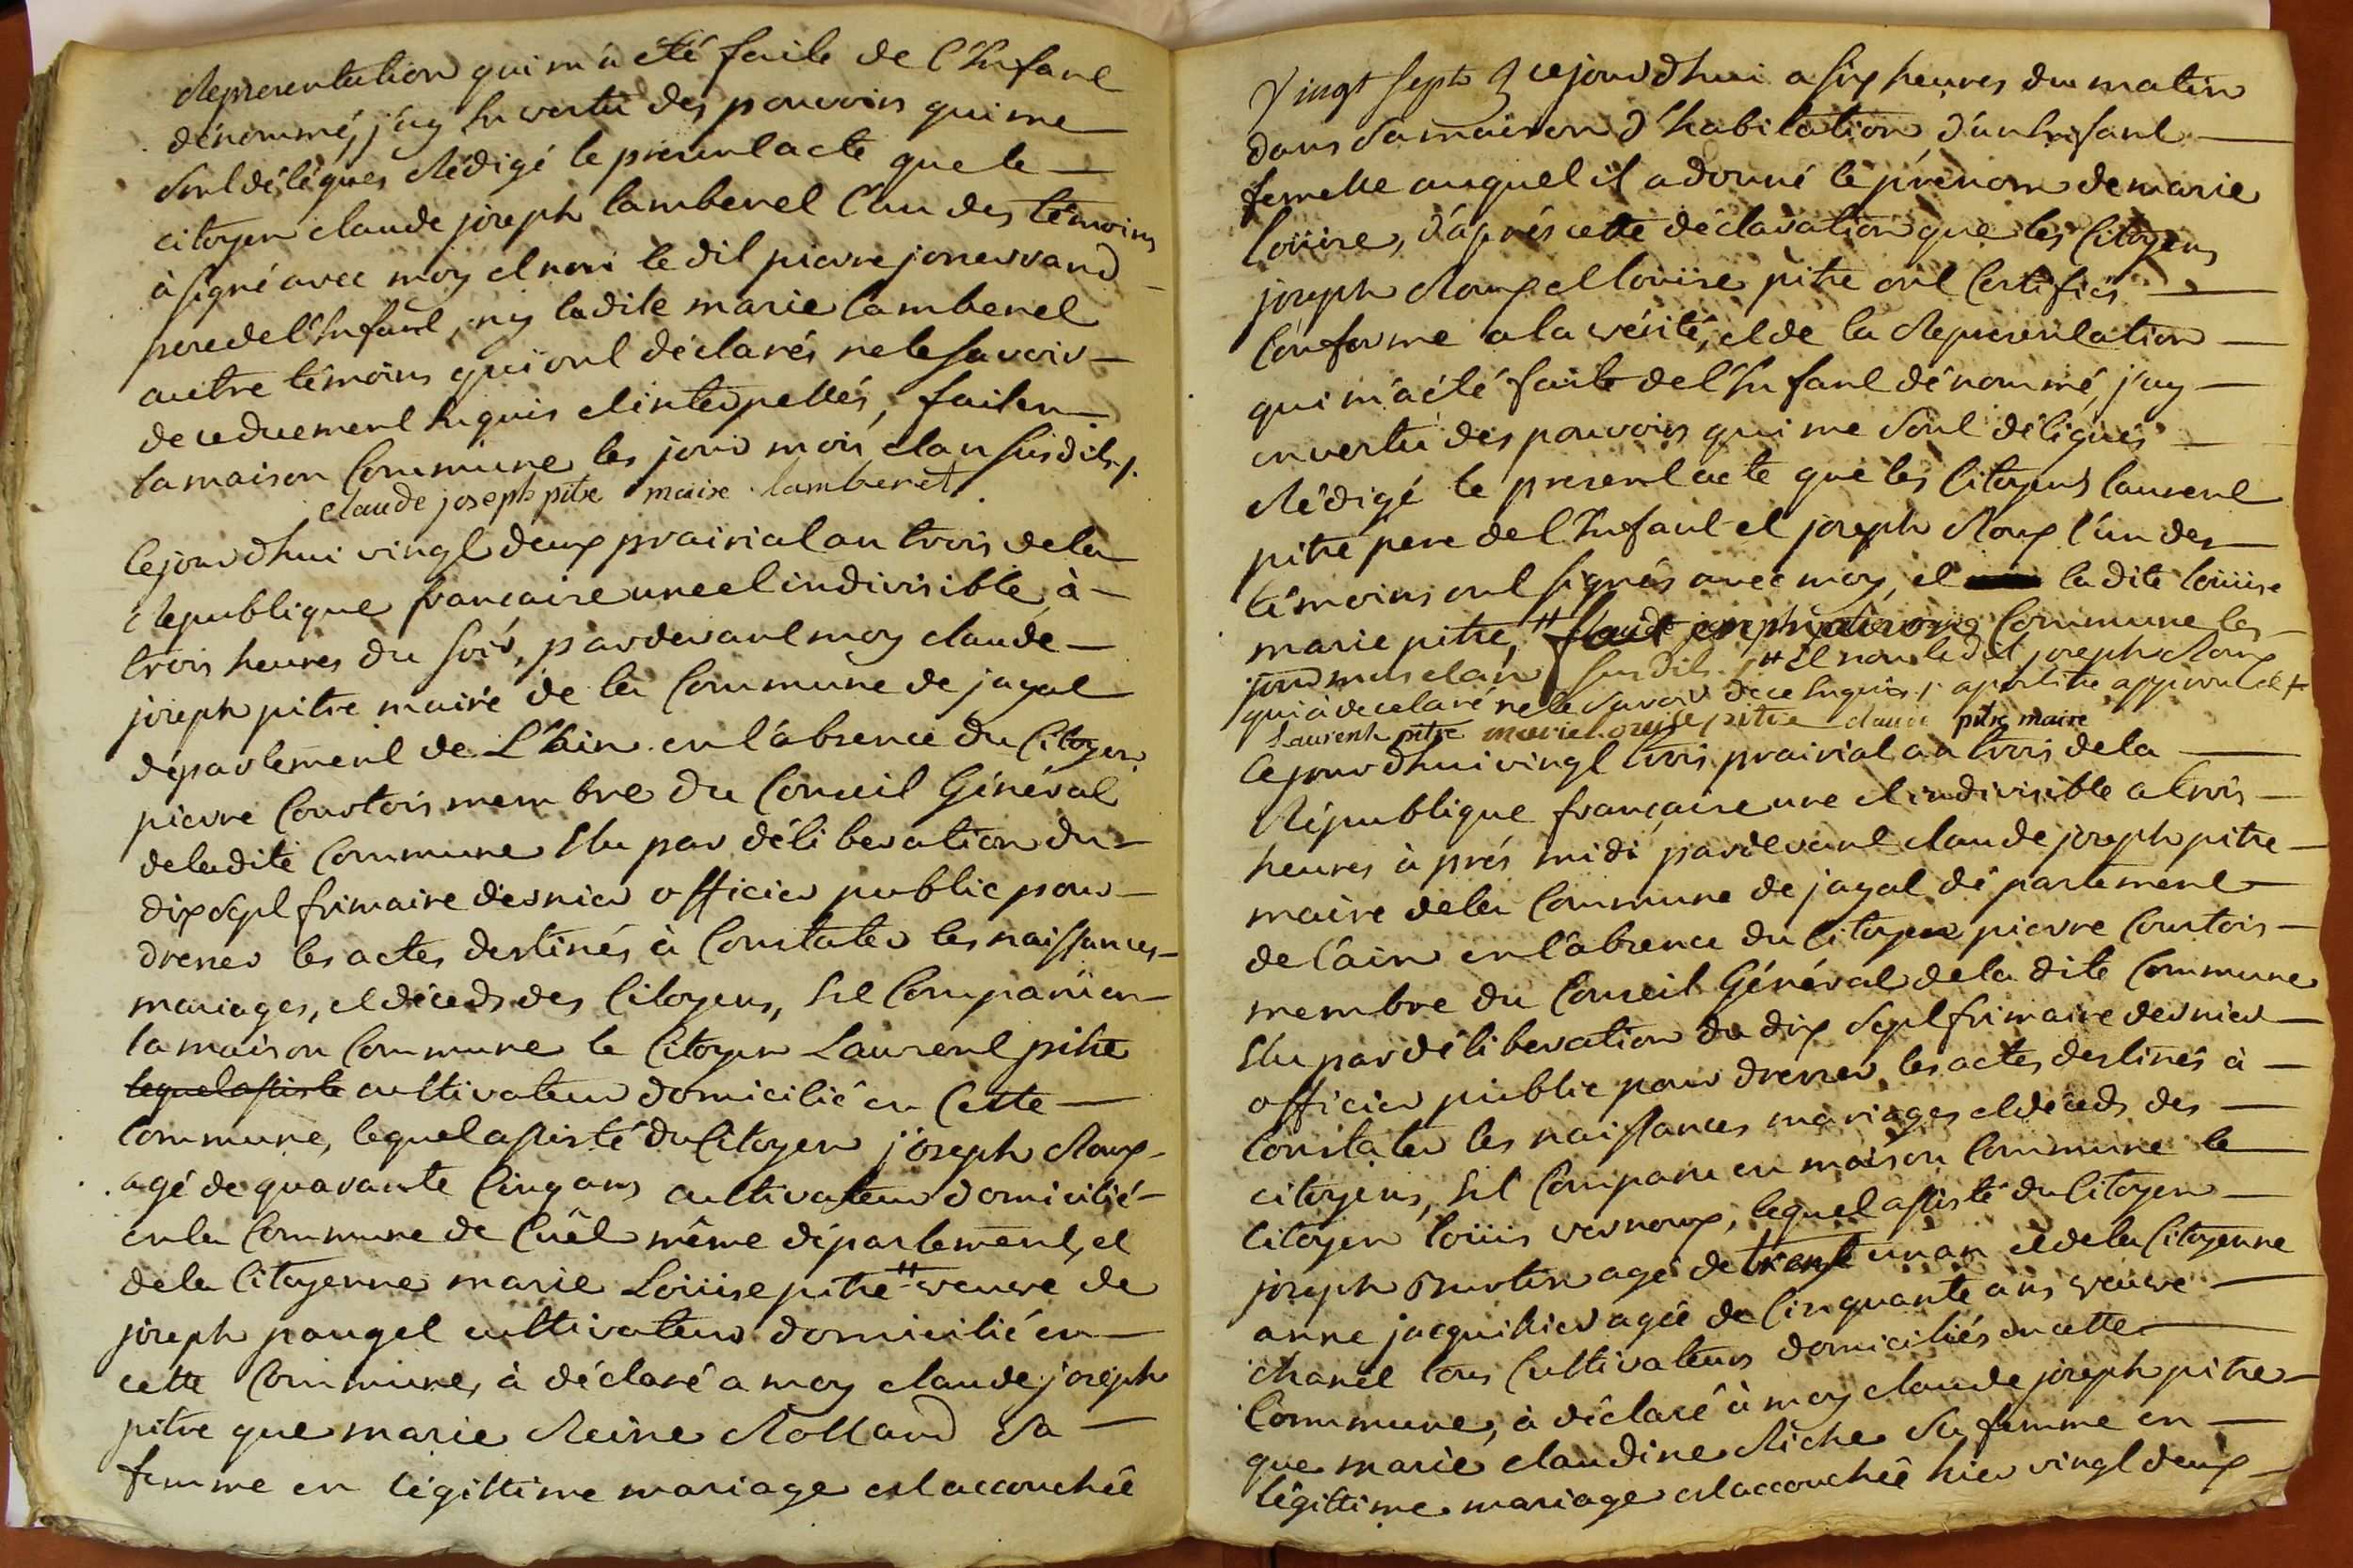 Representation qui m'a été faite de l'Enfant
dénommé, j'ay En vertu des pouvoirs qui me
sont délégués Rédigé le present acte que le
citoyen claude joseph lamberet l'un des témoins
à signé avec moy et non le dit pierre jonervand
pere de l'Enfant, ny la dite marie lamberet
autre témoins qui ont déclarés ne le savoir
de ce duement Enquis et interpellés, fait en
la maison Commune les jour mois et an susdits
claude joseph pitre maire lamberet
Cejourdhui vingt deux prairial an trois de la
Republique francaise une et indivisible, à
trois heures du soir, pardevant moy claude
joseph pitre maire de la Commune de jayat
département de L'ain en l'absence du Citoyen
pierre Courtois membre du Conseil Général
de la dite Commune Elu par délibération du
dix sept frimaire dernier officier public pour
dresser les actes destinés à Constater les naissances
mariages, et déceds des Citoyens, Est Comparu en
la maison Commune le Citoyen Laurent pitre
lequel assisté cultivateur domicilié en Cette
Commune, lequel assisté du Citoyen joseph Roux
agé de quarante Cinq ans cultivateur domicilié
en la Commune de Cuêt même département, et
de la Citoyenne marie Loüise pitre # veuve de
joseph pauget cultivateur domicilié en
cette Commune, à déclaré a moy claude joseph
pitre que marie Reine Rolland Sa
femme en légittime mariage est accouchée
Vingt sept ce jourdhui a six heures du matin
dans Sa maison d'habitation d'un Enfant
femelle auquel il a donné le prénom de marie
loüise, d'après cette déclaration que les Citoyens
joseph Roux et loüise pitre ont Certifiés
Conforme a la vérité, et de la Representation
qui m'a été faite de l'Enfant dénommé, j'ay
en vertu des pouvoirs qui me sont délégués
Rédigé le present acte que les Citoyens laurent
pitre pere de l'Enfant et joseph Roux l'un des
témoins ont signés avec moy, et la dite loüise
marie pitre, # Commune les
jour mois et an susdits # Et non le dit joseph Roux
qui à decelaré ne le savoir de ce Enquis
Laurent pitre marie Louise pitre claude pitre maire
Cejourdhui vingt trois prairial an trois de la
République française une et indivisible a trois
heures après midi pardevant claude joseph pitre
maire de la Commune de jayat département
de l'ain en l'absence du Citoyen pierre Courtois
membre du Conseil Général de la dite Commune
Elu par délibération du dix Sept frimaire dernier
officier public pour dresser les actes destinés à
Constater les naissances mariages et décèds des
citoyens, Est Comparu en maison Commune le
Citoyen loüis vernoux, lequel assisté du Citoyen
joseph Burtin agé de trente un an et de la Citoyenne
anne jacquihier agée de Cinquante ans veuve
chanel tous Cultivateurs domiciliés en cette
Commune, à déclaré à moy claude joseph pitre
que marie claudine Riche Sa femme en
légittime mariage est accouchée hier vingt deux